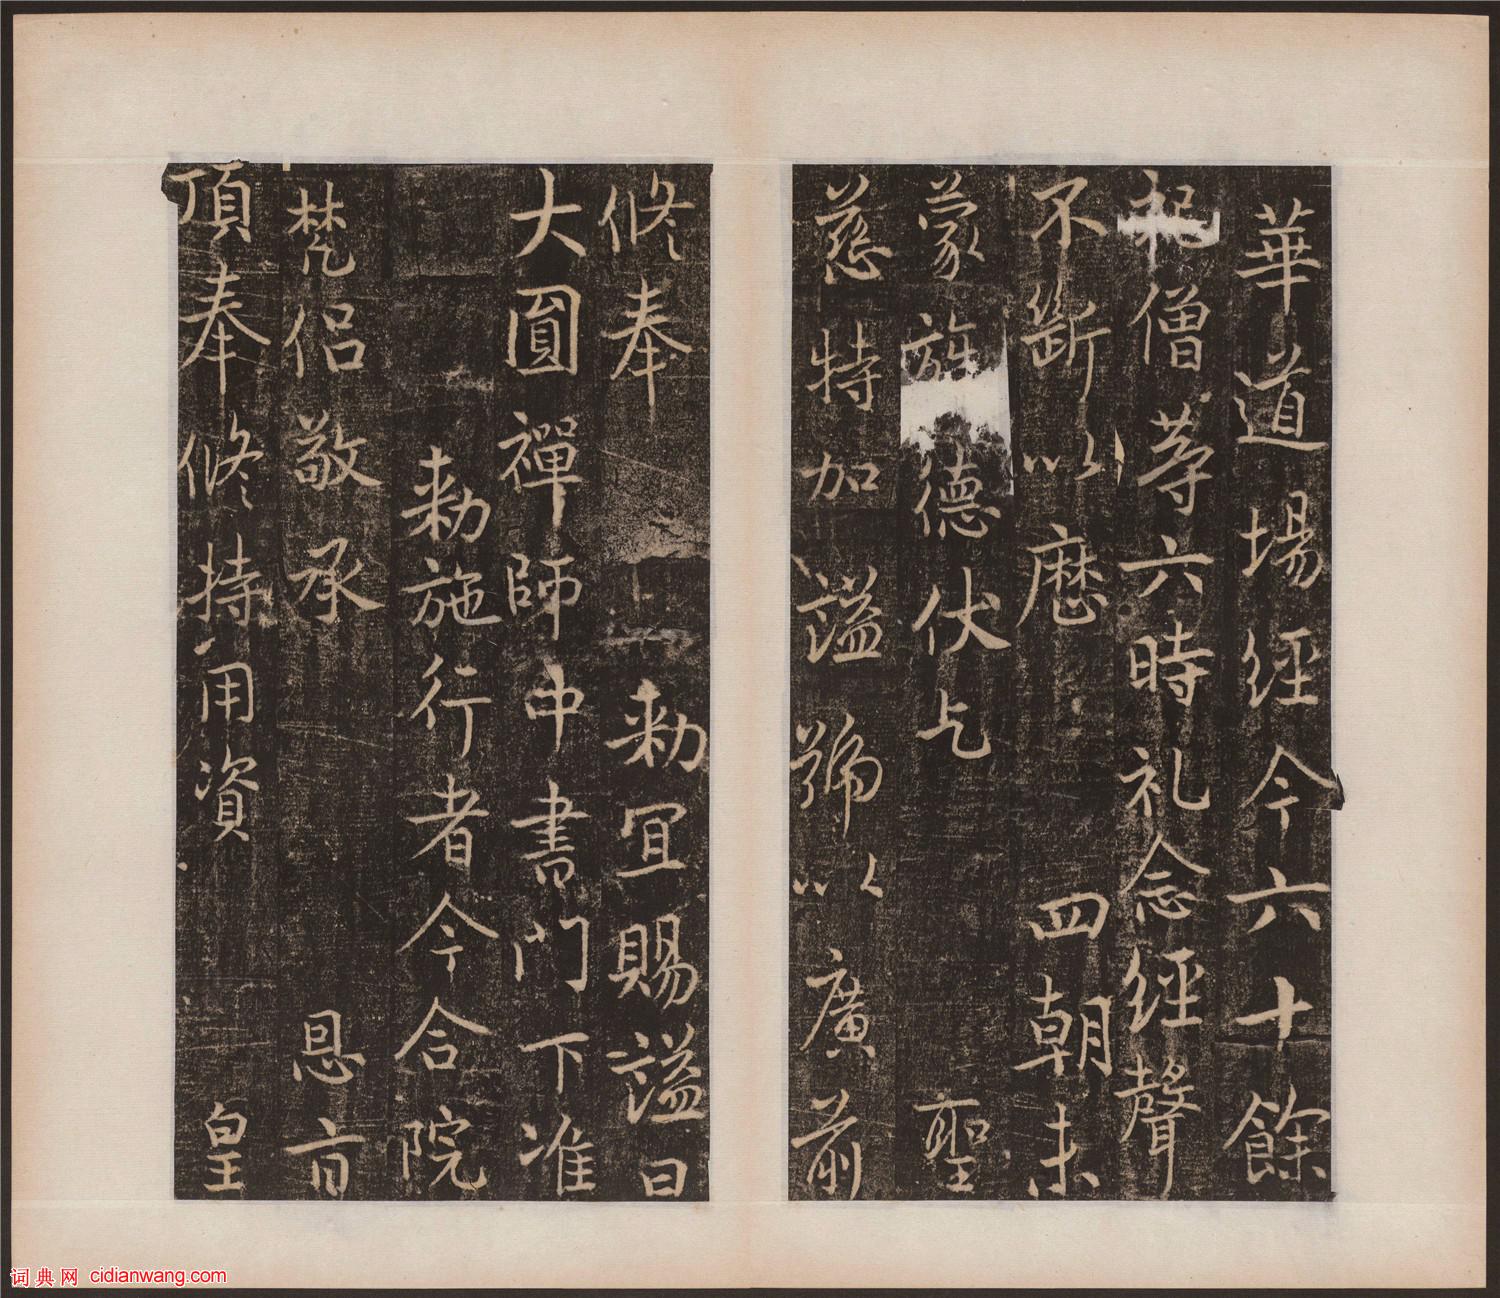 華道場經今六十餘
祀僧等六時礼念經聲
不斷以歷四朝未
蒙旌德伏乞聖
慈特加謚號以廣前
修奉勅宜賜謚曰
大圓禪師中書門下准
勅施行者今合院
梵侣敬承恩旨
頂奉修持用資皇
词典网 cidianwang.com